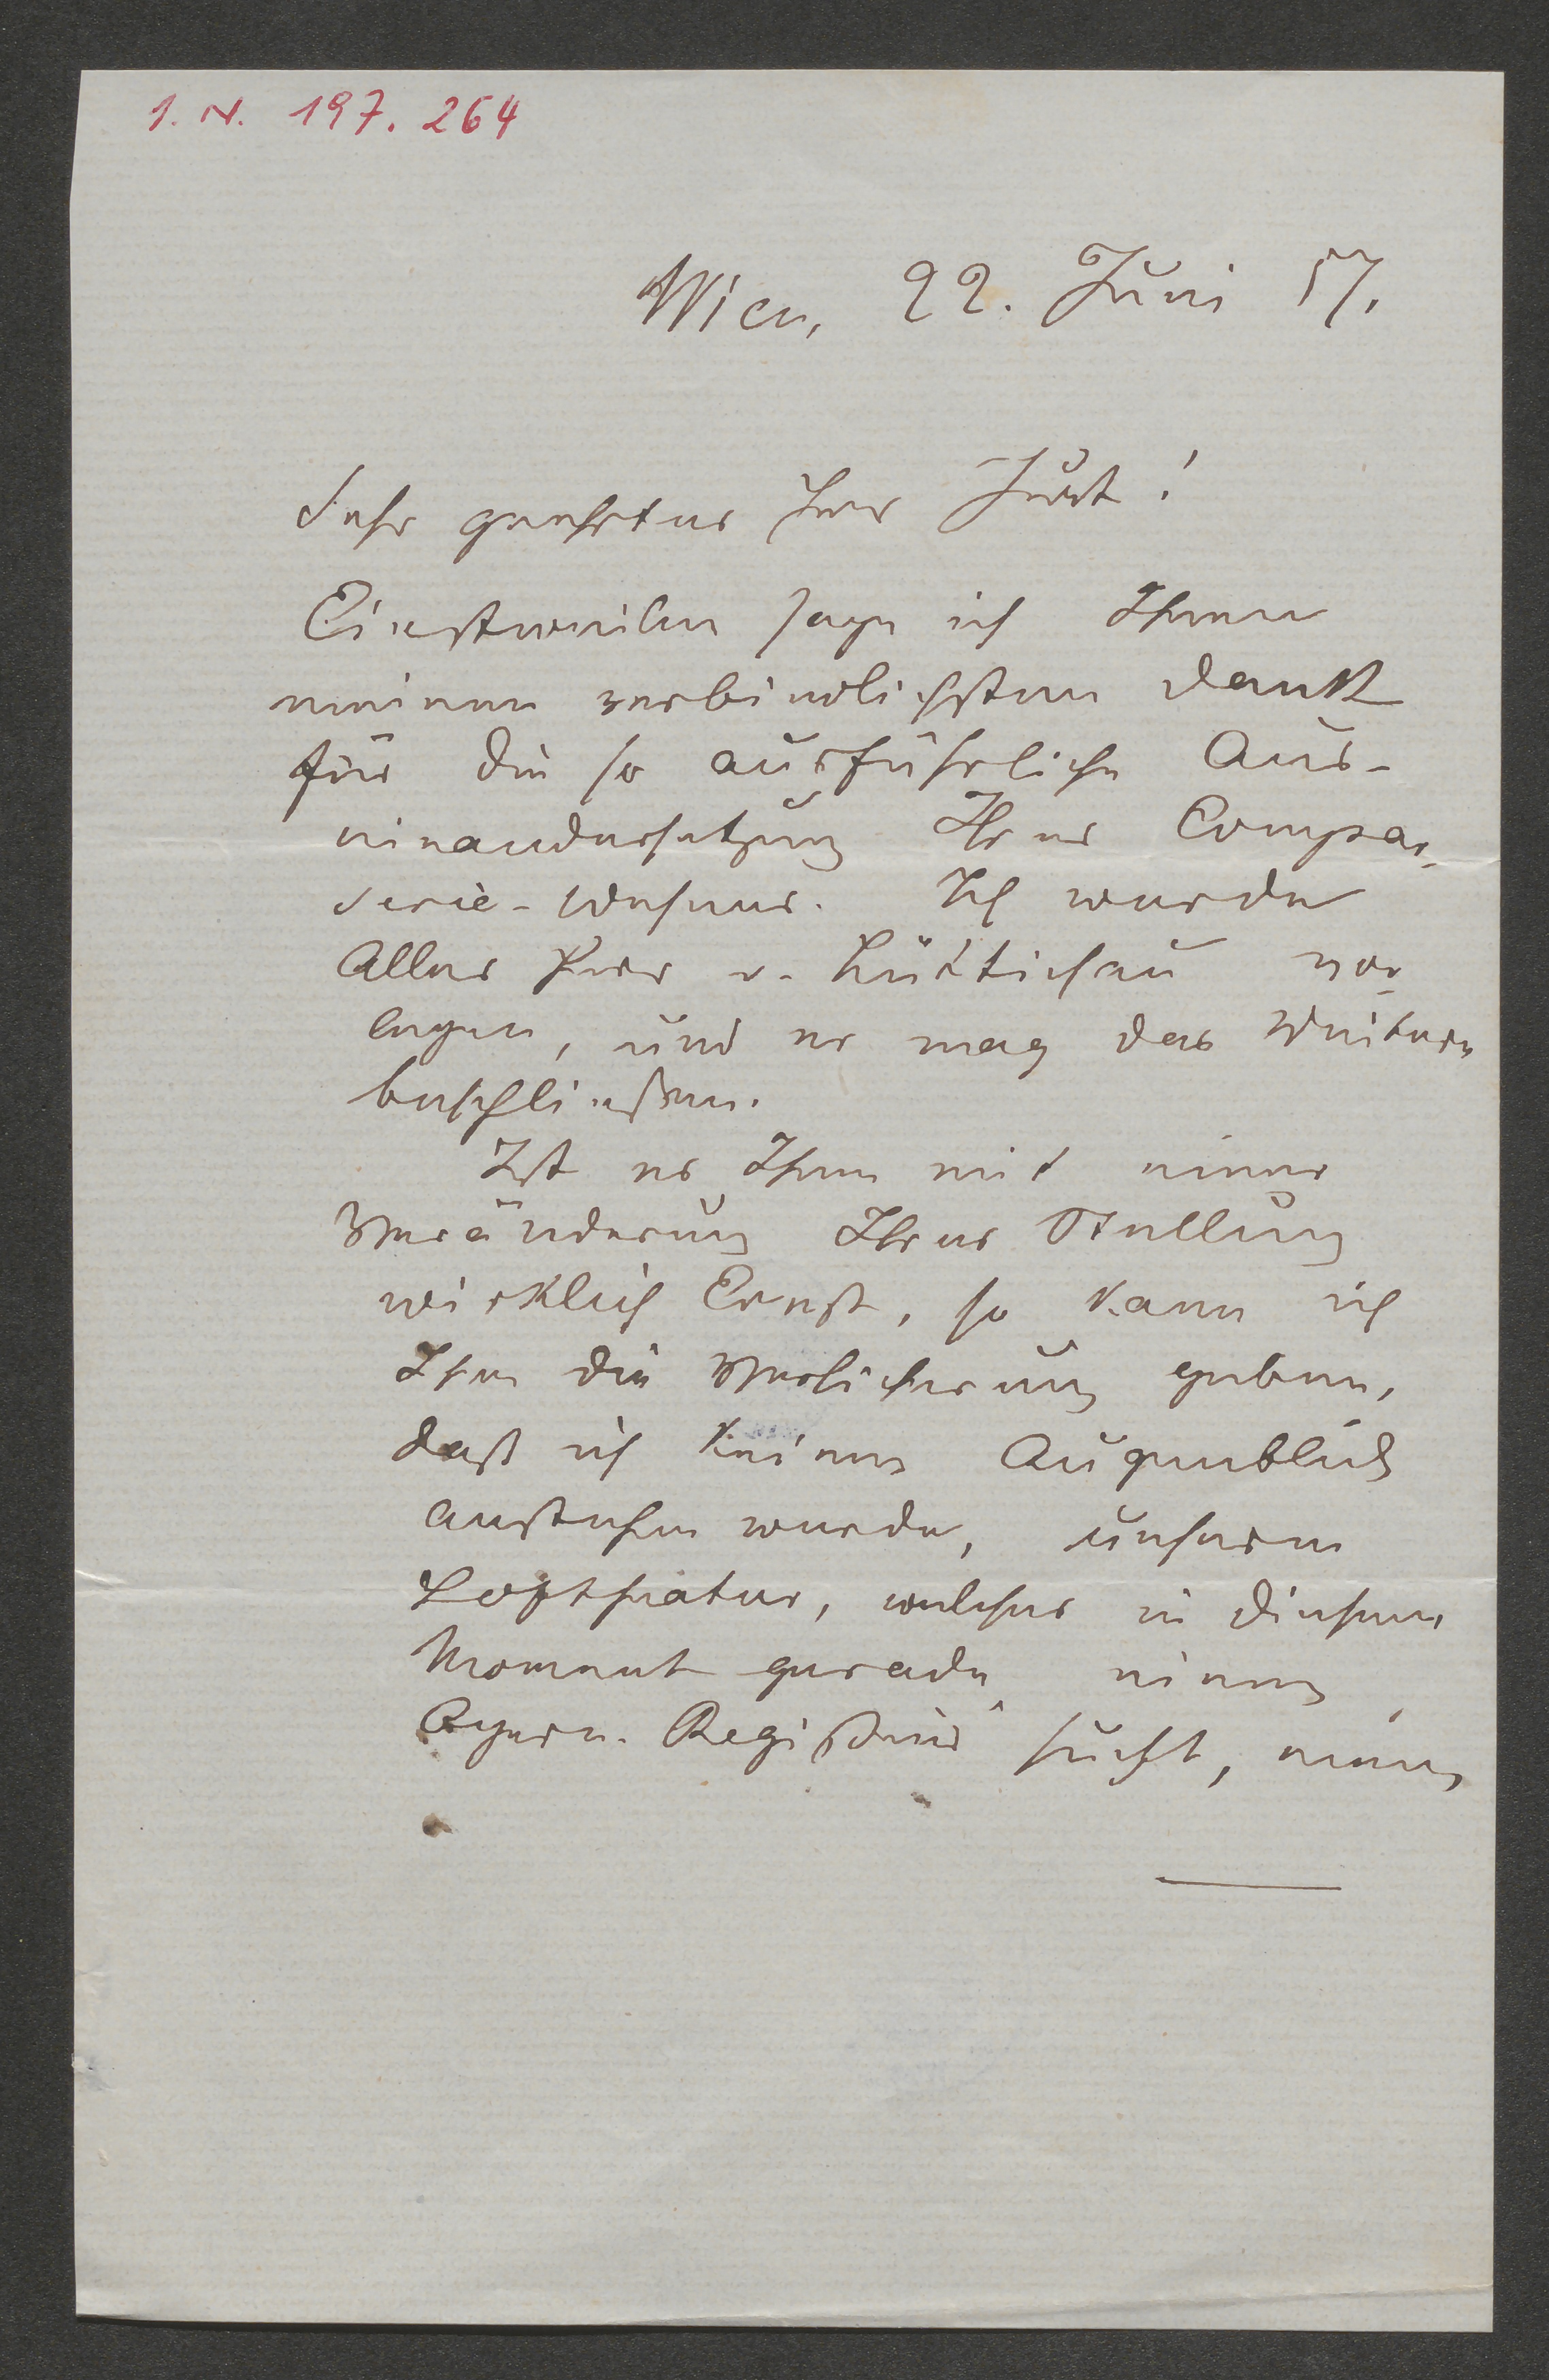 I. N. 197. 264
Wien, 22. Juni 57.
Sehr geehrter Herr Just!
Einstweilen sage ich Ihnen
meinen verbindlichsten Dank
für die so ausführliche Aus-
einandersetzung Ihres Compar-
serie-Wesens. Ich werde
Alles Herr v. Lüttichau vor-
legen, und er mag das Weitere
beschließen.
Ist es Ihnen mit einer
Veränderung Ihrer Stellung
wirklich Ernst, so kann ich
Ihnen die Versicherung geben,
daß ich keinen Augenblick
anstehen werde, unserem
Hoftheater, welches in diesem
Moment gerade einen
Opern-Regisseur sucht, einen